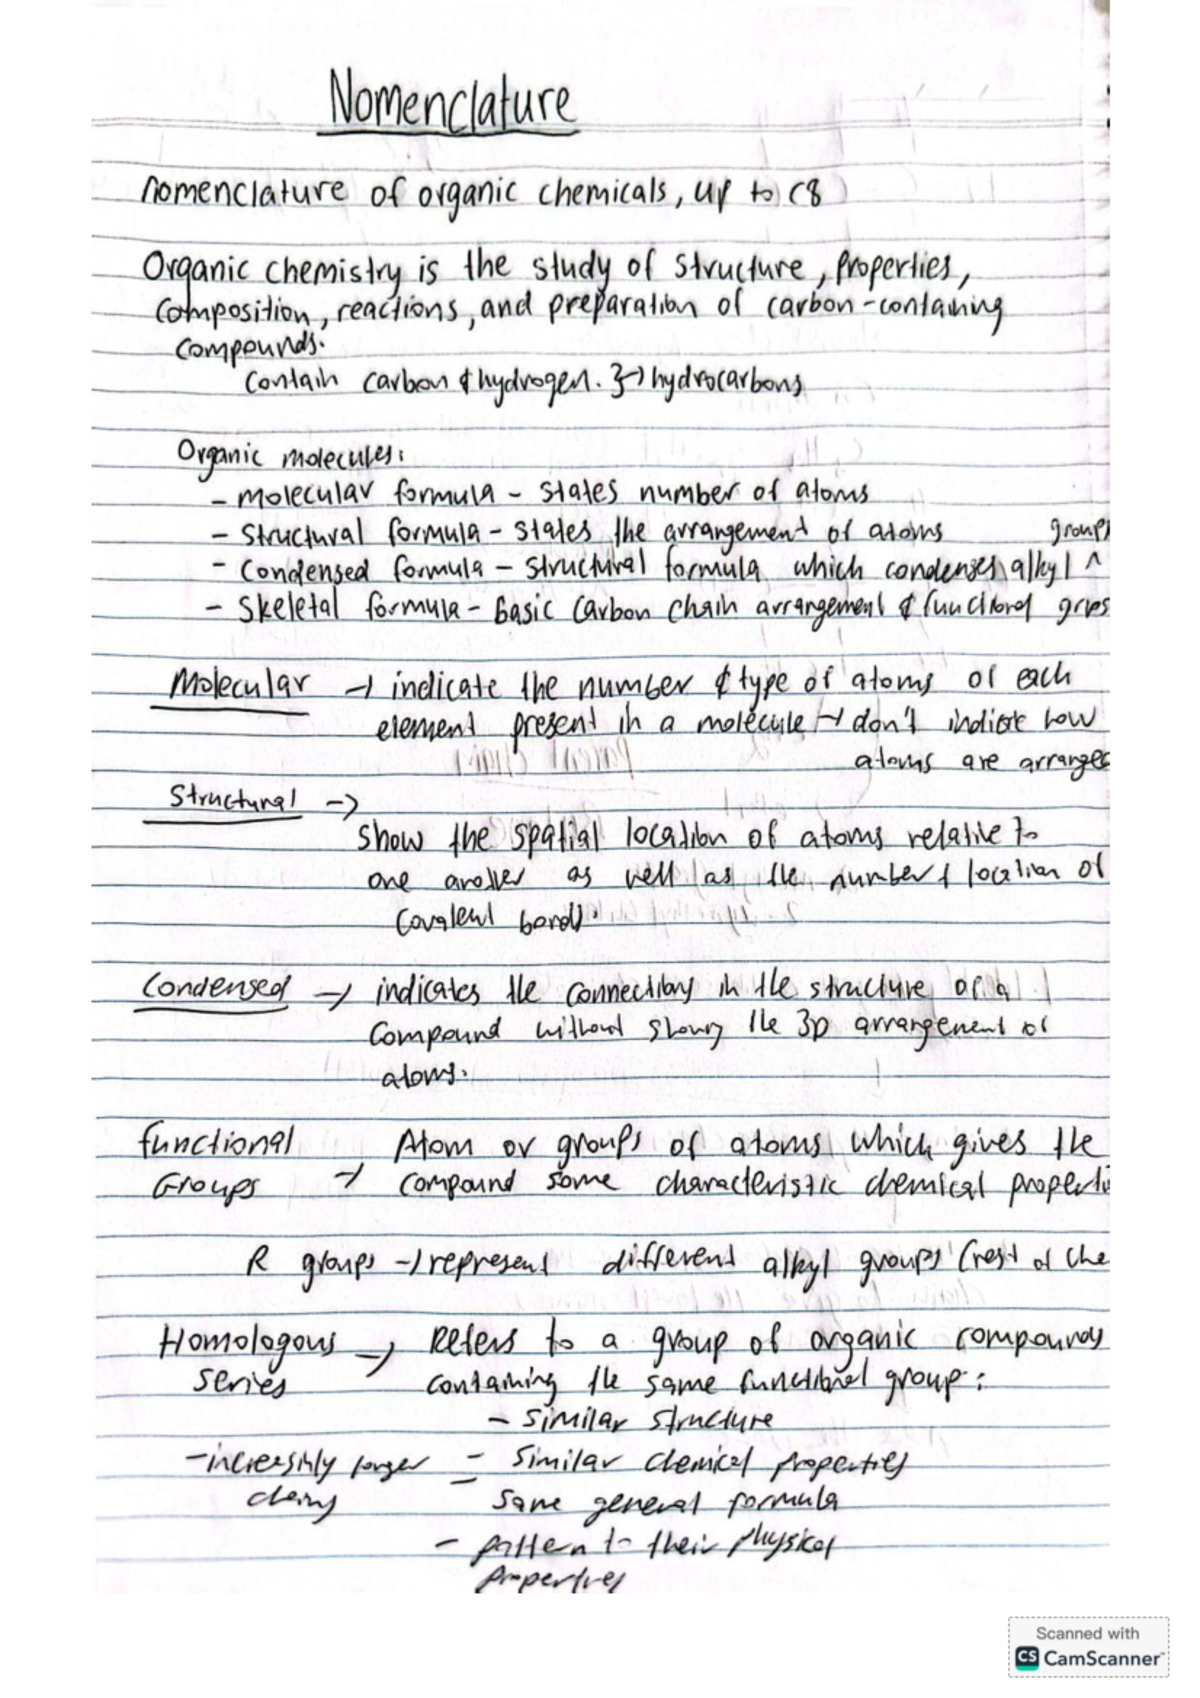 Nomenclature
Nomenclature of organic chemicals, up to C8
Organic chemistry is the study of structure, properties,
composition, reactions, and preparation of carbon-containing
compounds.
Contain carbon & hydrogen. }→ hydrocarbons
Organic molecules:
- Molecular formula - states number of atoms
- Structural formula - states the arrangement of atoms
groups
- Condensed formula - structural formula which condenses alkyl ^
- Skeletal formula - basic carbon chain arrangement & functional grps
Molecular → indicate the number & type of atoms of each
element present in a molecule → don't indicate how
atoms are arranged
Structural →
Show the spatial location of atoms relative to
one another as well as the number & location of
covalent bonds.
Condensed → indicates the connections in the structure of a
compound without showing the 3D arrangement of
atoms.
Functional Atom or groups of atoms which gives the
Groups → compound some characteristic chemical properti
R groups → represent different alkyl groups (rest of the
Homologous → Refers to a group of organic compounds
series containing the same functional group:
- similar structure
- increasingly longer - similar chemical properties
chains - same general formula
- pattern to their physical
properties
Scanned with
CS CamScanner